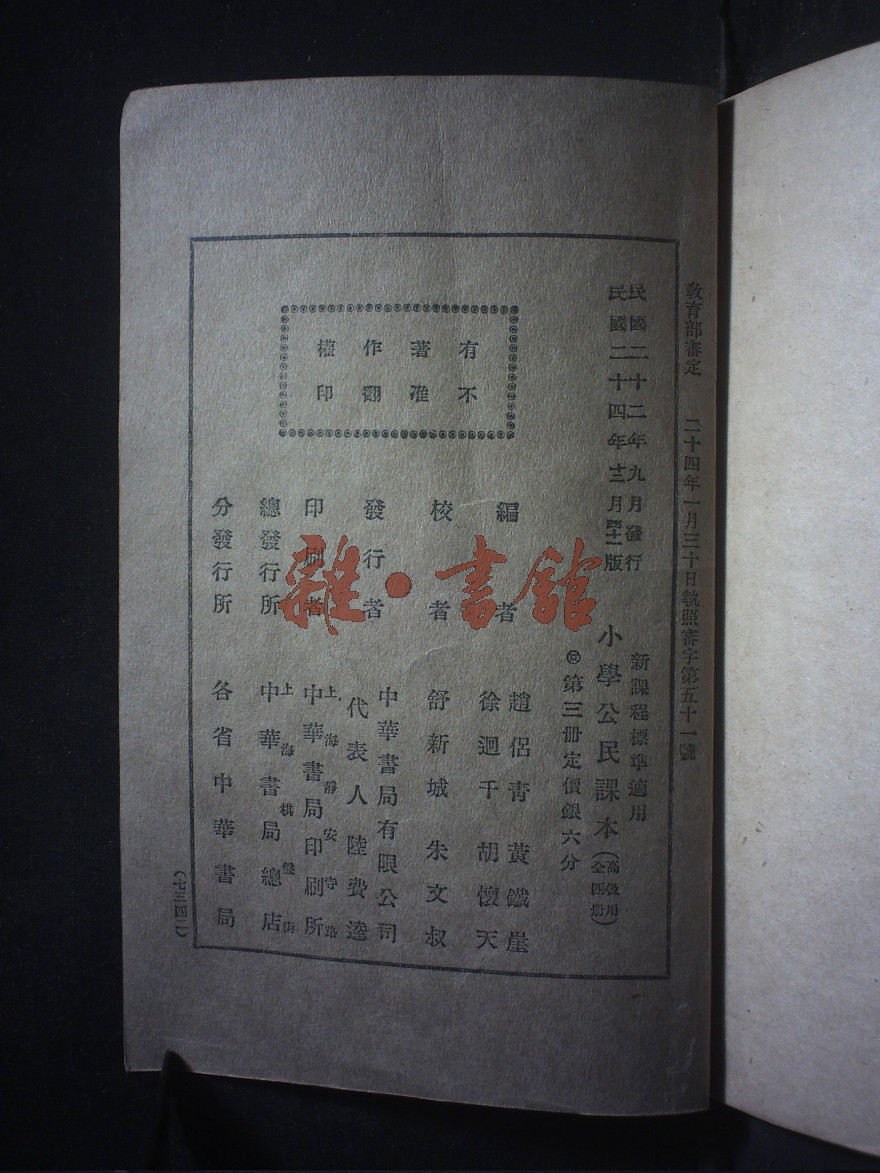 教育部審定　二十四年一月三十日執照審字第五十一號
民國二十二年九月發行
民國二十四年十二月四十一版
新課程標準適用
小學公民課本（高級用 全四冊）
第三冊定價銀六分
有著作權
不准翻印
編者　趙侶青　黃鐵崖
徐迥千　胡懷天
校者　舒新城　朱文叔
發行者　中華書局有限公司
代表人　陸費逵
印刷者　上海靜安寺路
中華書局印刷所
總發行所　上海棋盤街
中華書局總店
分發行所　各省中華書局
（七三四二）
雜·書館